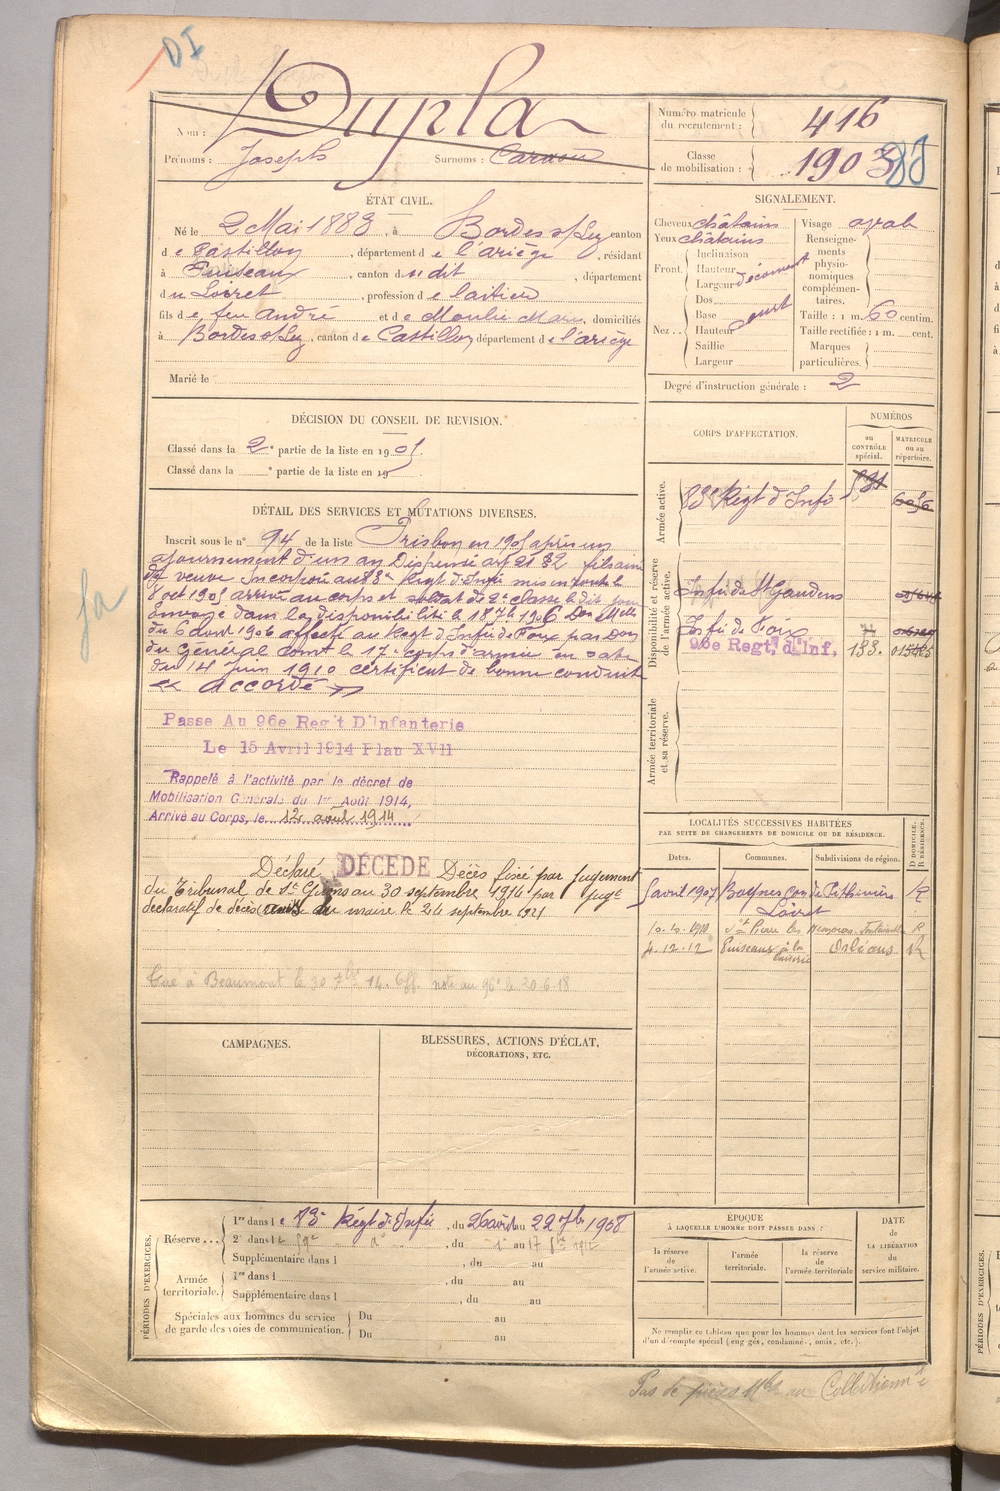 DI
Nom : Dupla
Prénoms : Joseph Surnoms :
Numéro matricule du recrutement : 416
Classe de mobilisation : 1903
ÉTAT CIVIL.
Né le 2 Mai 1883, à Bordes s/Lez canton
de Castillon, département de l'ariège, résidant
à Puiseaux, canton du dit, département
du Loiret, profession de laitier
fils de feu André et de Moulié Marie, domiciliés
à Bordes s/Lez, canton de Castillon département de l'ariège
Marié le
SIGNALEMENT.
Cheveux châtains
Yeux châtains
Front. Inclinaison
Hauteur
Largeur
Nez .. Dos
Base
Hauteur
Saillie
Largeur
Visage oval
Renseignements physionomiques complémentaires.
Taille : 1 m. 60 centim.
Taille rectifiée : 1 m. cent.
Marques particulières.
Degré d'instruction générale : 2
DÉCISION DU CONSEIL DE REVISION.
Classé dans la 2e partie de la liste en 1905.
Classé dans la e partie de la liste en 19
DÉTAIL DES SERVICES ET MUTATIONS DIVERSES.
Inscrit sous le n° 94 de la liste en 1905 après un
ajournement d'un an Dispensé art 21 § 2 fils ainé
de veuve Incorporé au 83e Regt d'Infie mis en route le
8 oct 1905 arrivé au corps et soldat de 2e classe le dit jour
Envoyé dans la disponibilité le 18 7b 1906
du 6 aout 1906 affecté au Regt d'Infie de Foix par
du Général comt le 17e corps d'armée en date
du 14 Juin 1910 certificat de bonne conduite
« accordé »
Passe Au 96e Reg't D'Infanterie
Le 15 Avril 1914 Plan XVII
Rappelé à l'activité par le décret de
Mobilisation Générale du 1er Août 1914,
Arrivé au Corps, le 12 août 1914
Déclaré DÉCÉDÉ Décès fixé par jugement
du Tribunal de St Girons au 30 septembre 1914 par jugt
déclaratif de décès du maire le 24 septembre 1921
Tué à Beaumont le 30 7bre 14. noté au 96e le 20-6-18
CORPS D'AFFECTATION.
NUMÉROS
au CONTRÔLE spécial.
MATRICULE ou au répertoire.
Armée active.
83e Régt d'Infie
Disponibilité et réserve de l'armée active.
Infie de St Gaudens
Infie de Foix
96e Regt. d'Inf. 183.
Armée territoriale et sa réserve.
LOCALITÉS SUCCESSIVES HABITÉES
PAR SUITE DE CHANGEMENTS DE DOMICILE OU DE RÉSIDENCE.
Dates. Communes. Subdivisions de région. D DOMICILE. R RÉSIDENCE.
5 avril 1907 Pithiviers R
Loiret
St Pierre les Nemours Fontainebleau R
4.12.12 Puiseaux à la laiterie Orléans R
CAMPAGNES.
BLESSURES, ACTIONS D'ÉCLAT,
DÉCORATIONS, ETC.
PÉRIODES D'EXERCICES.
Réserve ... 1re dans le Régt d'Infie, du au 22 7b 1908
2e dans le 59e do, du 1er au 17 8bre 1912
Supplémentaire dans l , du au
Armée territoriale. 1re dans l , du au
Supplémentaire dans l , du au
Spéciales aux hommes du service de garde des voies de communication. Du au
Du au
ÉPOQUE
À LAQUELLE L'HOMME DOIT PASSER DANS :
la réserve de l'armée active.
l'armée territoriale.
la réserve de l'armée territoriale
DATE DE LA LIBÉRATION du service militaire.
Ne remplir ce tableau que pour les hommes dont les services font l'objet
d'un décompte spécial (engagés, condamnés, omis, etc.).
Pas de pièces Mles au